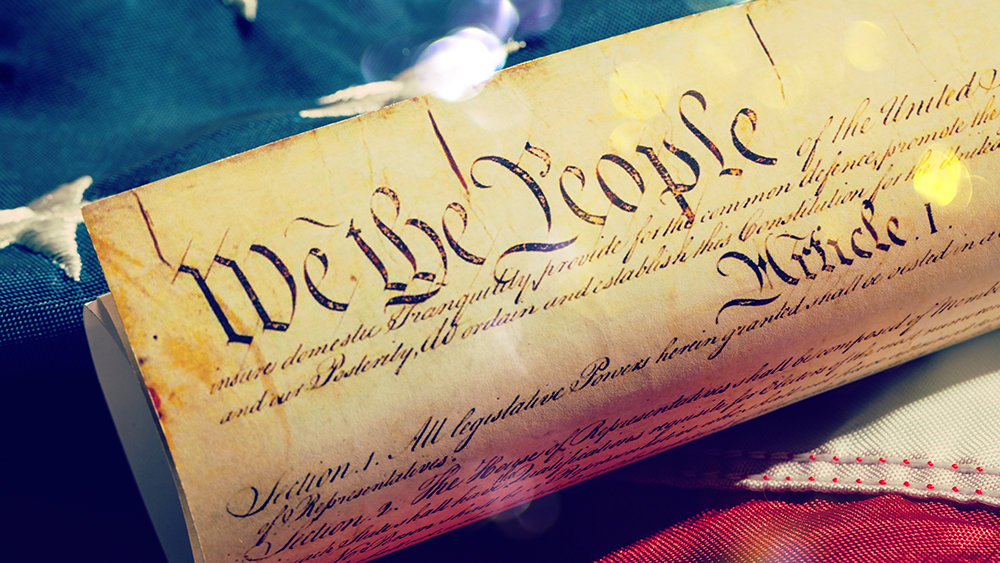 We the People of the United
insure domestic Tranquility, provide for the common defence, promote the
and our Posterity, do ordain and establish this Constitution for the United
Article. 1.
Section. 1. All legislative Powers herein granted shall be vested in a
of Representatives.
Section. 2. The House of Representatives shall be composed of